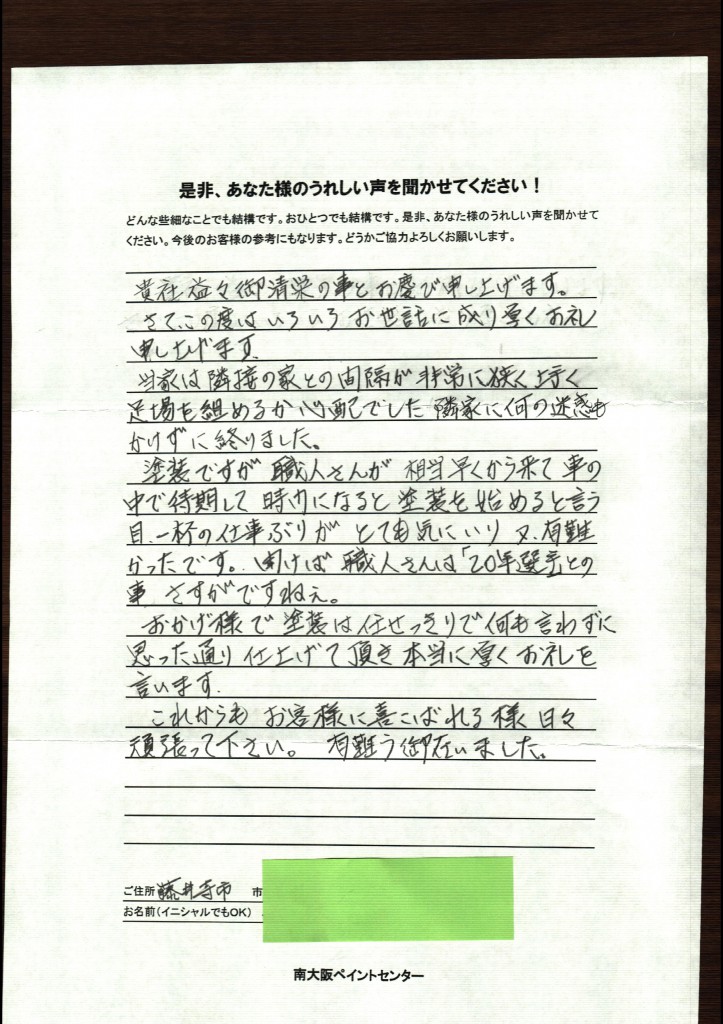 是非、あなた様のうれしい声を聞かせてください！
どんな些細なことでも結構です。おひとつでも結構です。是非、あなた様のうれしい声を聞かせて
ください。今後のお客様の参考にもなります。どうかご協力よろしくお願いします。
貴社益々御清栄の事とお慶び申し上げます。
さて、この度はいろいろお世話に成り厚くお礼
申し上げます。
当家は隣接の家との間隔が非常に狭く上手く
足場を組めるか心配でした 隣家に何の迷惑も
かけずに終りました。
塗装ですが 職人さんが 相当早くから来て 車の
中で待期して 時间になると 塗装を始めると言う
目一杯の仕事ぶりが とても気にいり 又、有難
かったです。聞けば 職人さんは「20年選手」との
事 さすがですねぇ。
おかげ様で 塗装は任せっきりで何も言わずに
思った通り仕上げて頂き本当に厚くお礼を
言います。
これからも お客様に喜こばれる様 日々
頑張って下さい。 有難う御在いました。
ご住所 藤井寺市 市
お名前（イニシャルでもOK）
南大阪ペイントセンター